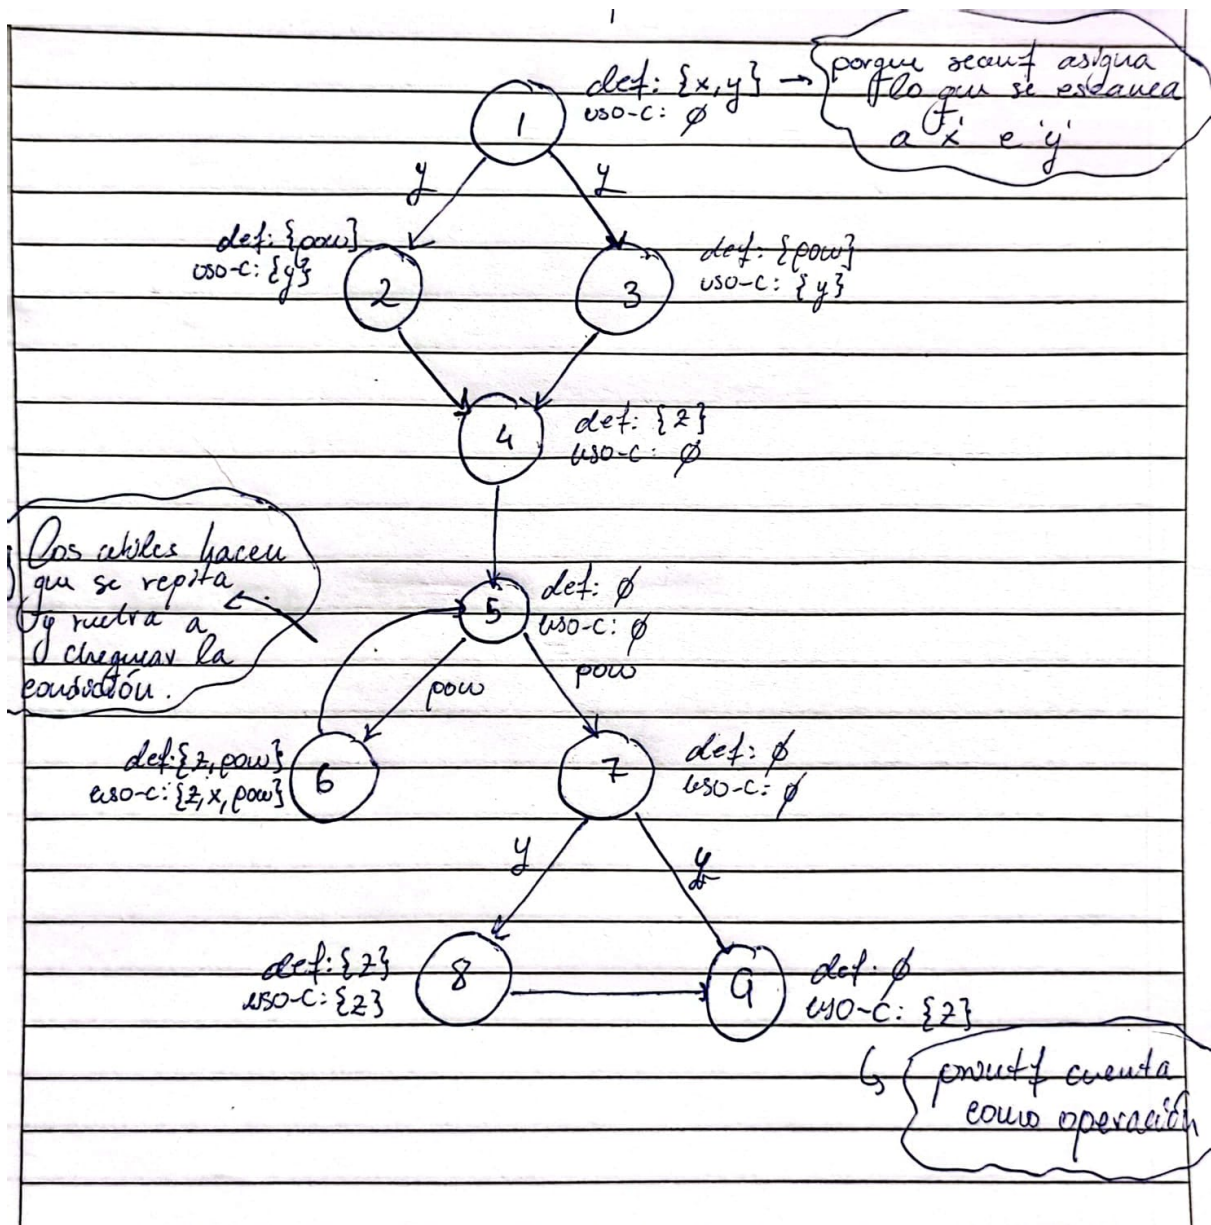 def: {x,y} →
uso-c: ∅
porque scanf asigna
lo que se escanea
a 'x' e 'y'
1
y
y
def: {pow}
uso-c: {y}
2
3
def: {pow}
uso-c: {y}
4
def: {z}
uso-c: ∅
Los whiles hacen
que se repita
y vuelva a
chequear la
condición.
5
def: ∅
uso-c: ∅
pow
pow
def:{z,pow}
uso-c:{z,x,pow}
6
7
def: ∅
uso-c: ∅
y
y
def:{z}
uso-c:{z}
8
9
def: ∅
uso-c: {z}
printf cuenta
como operación